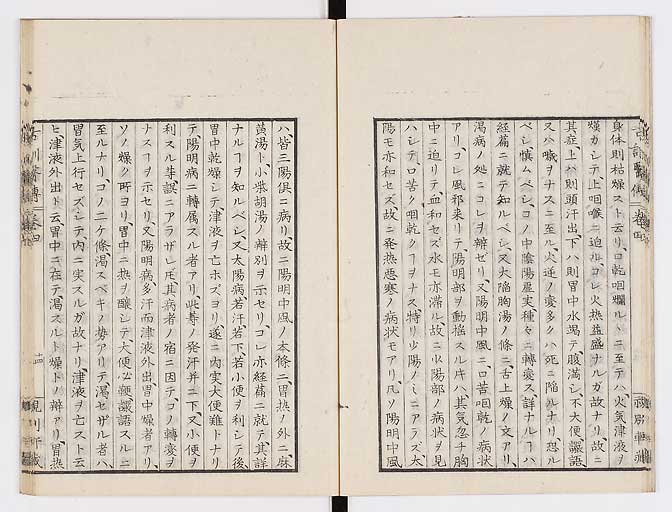 身体則枯燥スト云リ、口乾咽爛ルヽニ至テハ火気津液ヲ
燥ガシテ上咽喉ニ迫ルコレ火熱益盛ナルガ故ナリ、故ニ
其症、上ハ則頭汗出、下ハ則胃中水竭テ腹満シ、不大便、讝語
又ハ噦ヲナスニ至ル、火逆ノ変多クハ死ニ陥ルナリ恐ル
ベシ慎ムベシ、コノ中陰陽虚実種々ニ転変ス詳ナルコハ
経篇ニ就テ知ルベシ、又大陥胸湯ノ條ニ舌上燥ノ文アリ、
渇病ノ処ニコレヲ辨ゼリ、又陽明中風ニ口苦咽乾ノ病状
アリ、コレ風邪来リテ陽明部ヲ動揺スル片ハ其気忽チ胸
中ニ迫リテ、血和セズ水モ亦滞ル、故ニ少陽部ノ病状ヲ見
ハシテ、口苦ク咽乾クコヲナス、特リ少陽ノミニアラズ、太
陽モ亦和セズ、故ニ発熱悪寒ノ病状モアリ、凡ソ陽明中風
ハ、皆三陽倶ニ病リ、故ニ陽明中風ノ本條ニ胃熱ノ外ニ麻
黄湯ト、小柴胡湯ノ辨別ヲ示セリ、コレ亦経篇ニ就テ其詳
ナルコヲ知ルベシ、又太陽病若汗若下若小便ヲ利シテ後、
胃中乾燥シテ津液ヲ亡ホスヨリ遂ニ内実大便難トナリ
テ、陽明病ニ転属スル者アリ、此等ノ発汗并ニ下、又小便ヲ
利スル等誤ニアラザレ𪜈其病者ノ宿ニ因テ、コノ転変ヲ
ナスコヲ示セリ、又陽明病、多汗而津液外出胃中燥者アリ、
ソノ燥ク所ヨリ、胃中ニ熱ヲ醸シテ大便必鞕讝語スルニ
至ルナリ、コノ二ケ條渇スベキノ勢アリテ、渇セザル者ハ
胃気上行セズシテ、内ニ実スルガ故ナリ、津液ヲ亡スト云
ヒ、津液外出ト云、胃中ニ在テ渇スルト燥トノ辨アリ、胃熱